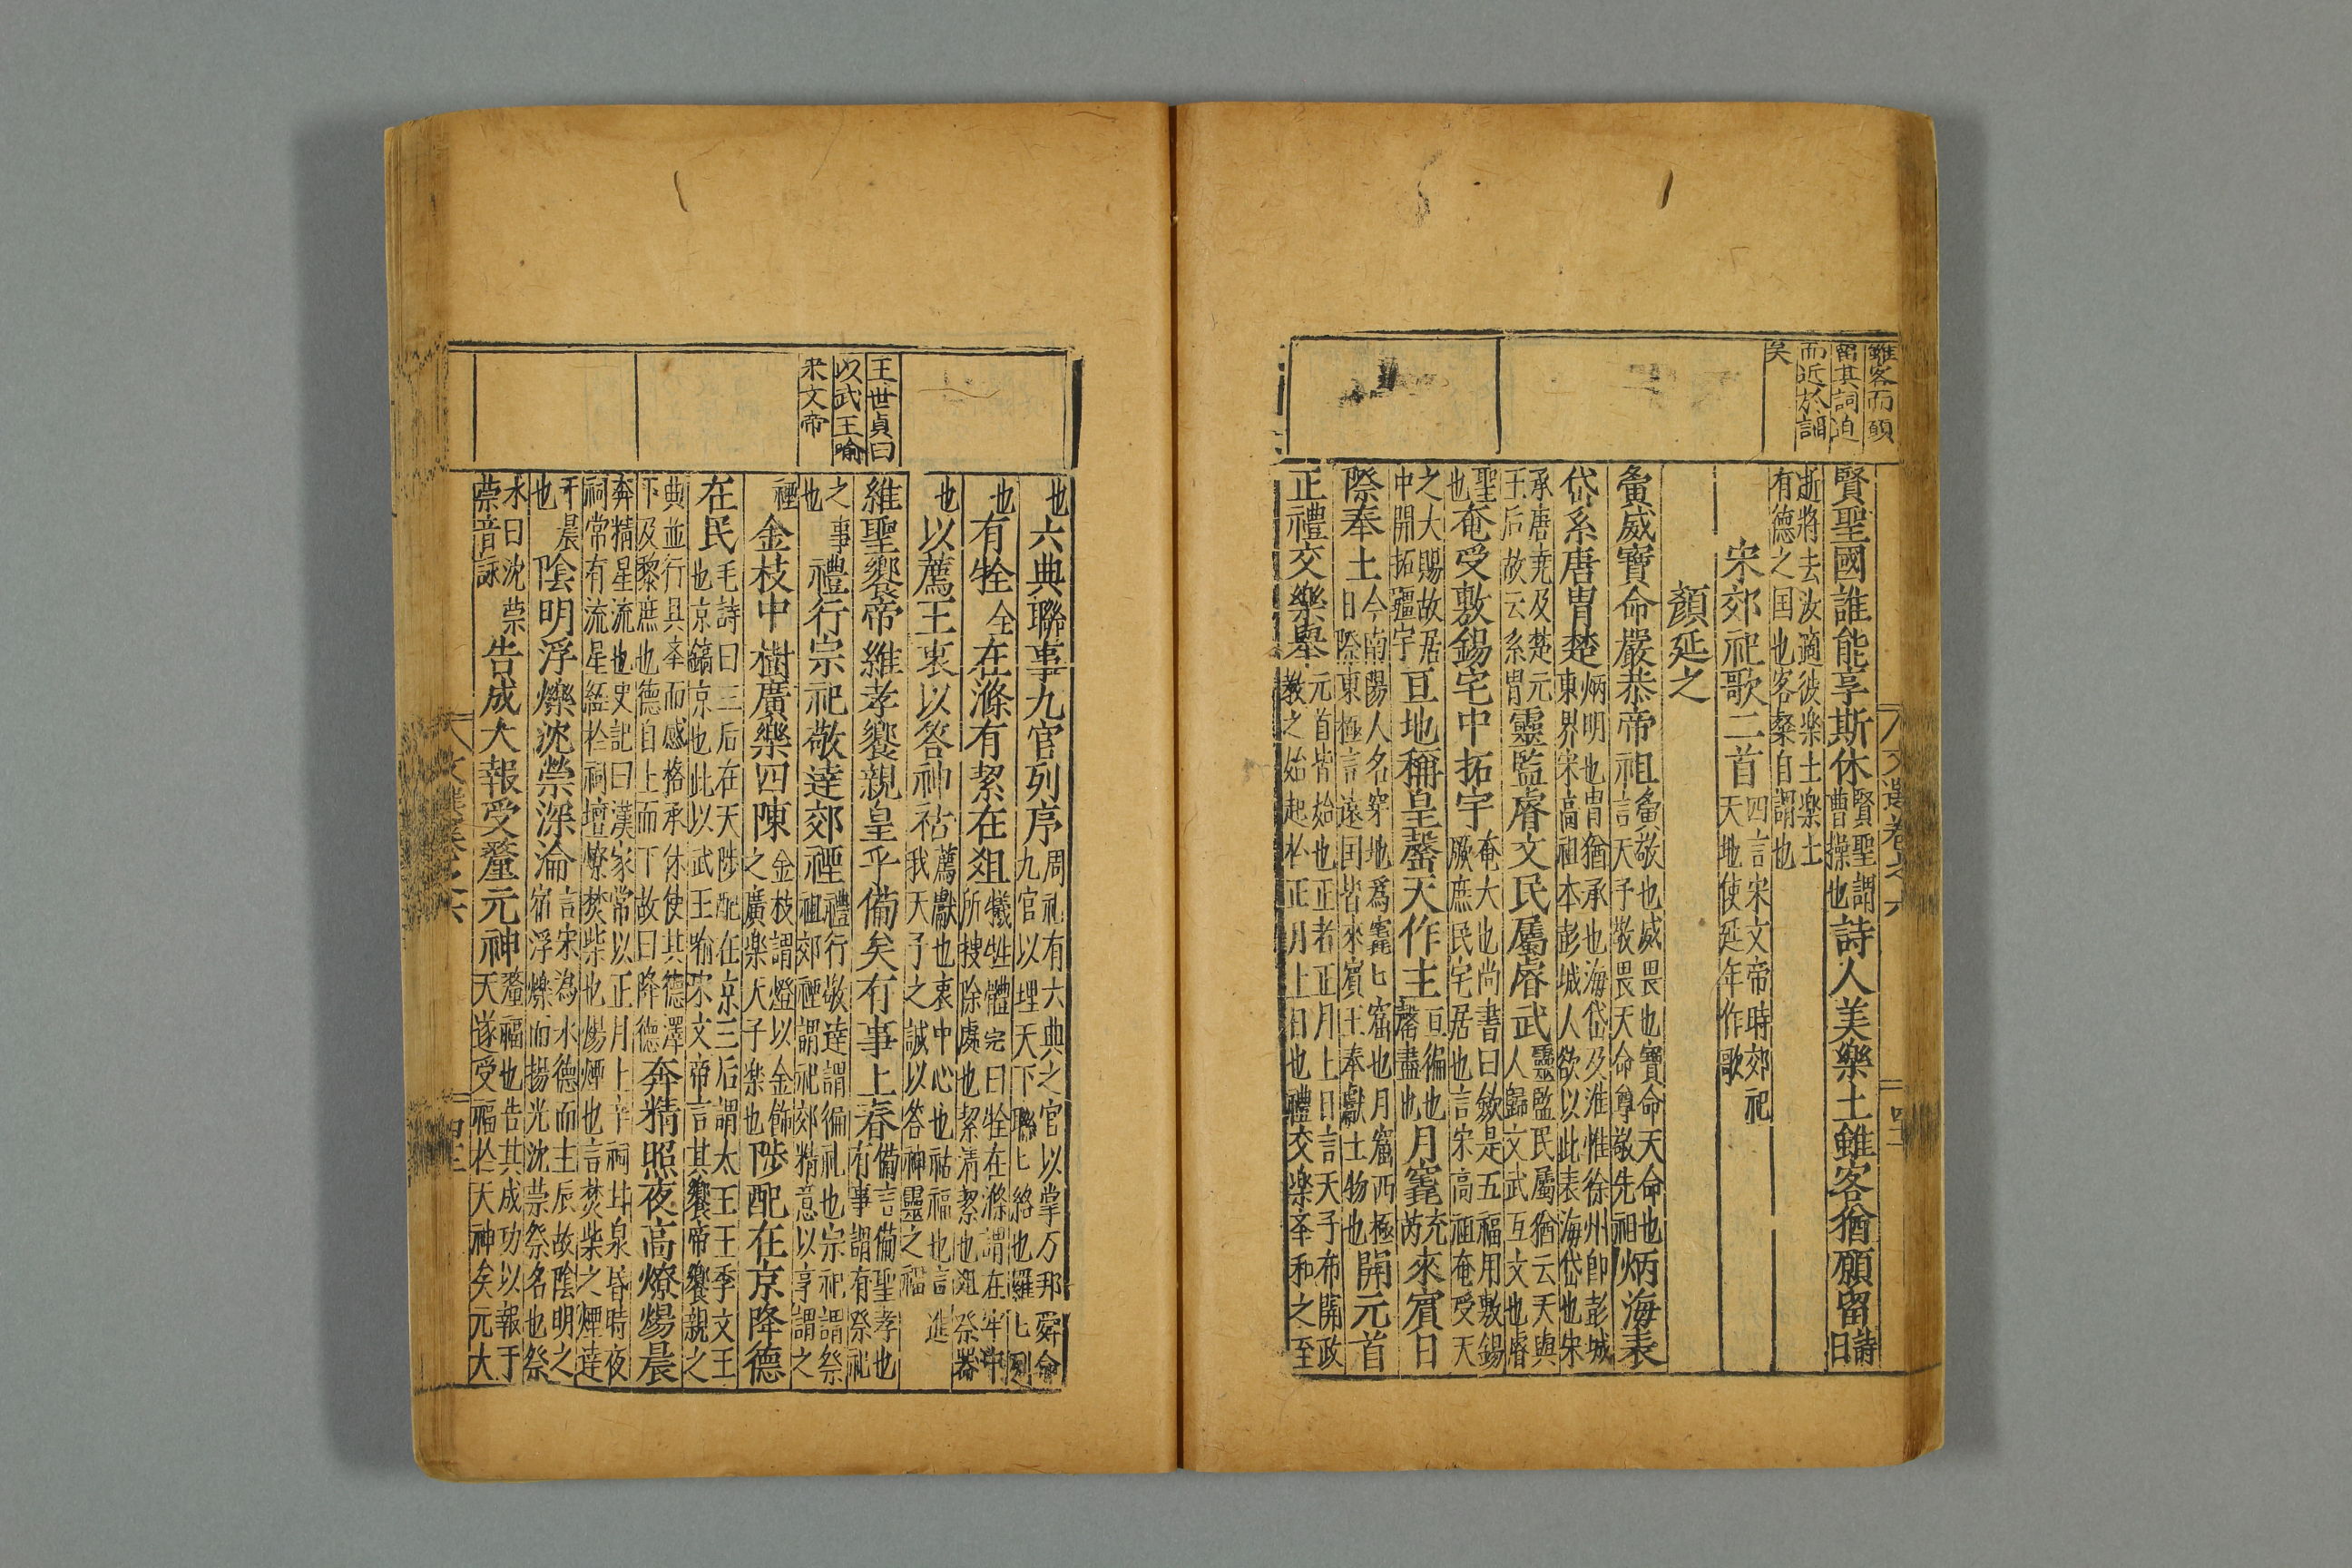 雖客而頋
留其詞迫
而近於誚
矣
賢聖國誰能享斯休賢聖謂曹操也詩人美樂土雖客猶願留詩曰
逝將去汝適彼樂土樂土有德之国也客粲自謂也
宋郊祀歌二首四言宋文帝時郊祀天地使延年作歌
顏延之
夤威寶命嚴恭帝祖夤敬也威畏也寶命天命也言天子敬畏天命尊敬先祖炳海表
岱系唐胄楚炳明也胄猶承也海岱及淮惟徐州即彭城東界宋高祖本彭城人欲以此表海岱也宋
承唐尭及楚元王后故云系胃靈監睿文民屬睿武靈監民屬猶云天與人歸文武互文也睿
聖也奄受敷錫宅中拓宇奄大也尚書曰斂是五福用敷錫厥庶民宅居也言宋高祖奄受天
之大賜故居中開拓疆宇亘地稱皇罄天作主亘徧也罄盡也月竁充芮來賓日
際奉土今南陽人名穿地爲竁匕窟也月窟西極日際東極言遠国皆來賓王奉獻土物也開元首
正禮交樂舉元首皆始也正者正月上日言天子布開政教之始起於正月上日也禮交樂奉和之至
王世貞曰
以武王喻
宋文帝
也六典聯事九官列序周礼有六典之官以掌万邦舜命九官以埋天下聯匕絡也羅匕列
也有牷全在滌有絜在俎犠牲體完曰牷在滌謂在牢中所搜除處也絜清絜也俎祭噐
也以薦王衷以答神祜薦獻也衷中心也祜福也言進我天子之誠以答神靈之福
維聖饗帝維孝饗親皇乎備矣有事上春備言備聖孝也有事謂有祭祀
之事也禮行宗祀敬達郊禋禮行敬達謂徧礼也宗祀謂祭祖郊禋謂祀郊精意以享謂之
禋金枝中樹廣樂四陳金枝謂燈以金飾之廣樂天子樂也陟配在京降德
在民毛詩曰三后在天陟配在京三后謂太王王季文王也京鎬京也此以武王喻宋文帝言其饗帝饗親之
典並行具奉而感格承休使其德澤下及黎庶也德自上而下故曰降德奔精照夜高燎煬晨
奔精星流也史記曰漢家常以正月上辛祠甘泉昏時夜祠常有流星経於祠壇燎焚柴也煬煙也言焚柴之煙達
于晨也陰明浮爍沈禜深淪言宋為水德而主辰故陰明之宿浮爍而揚光沈禜祭名也祭
水曰沈禜禜音詠告成大報受釐元神釐福也告其成功以報于天遂受福於天神矣元大